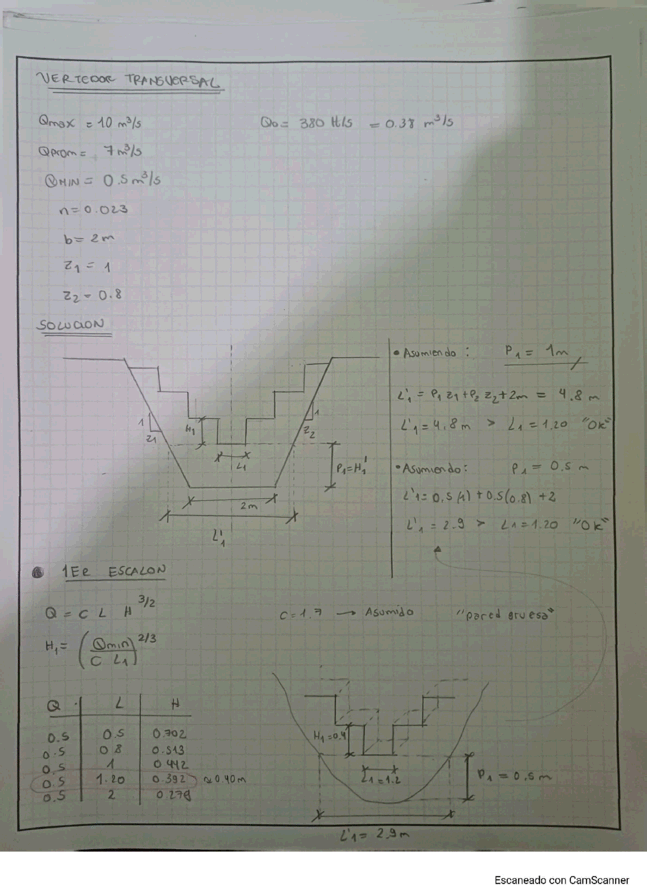 VERTEDOR TRANSVERSAL
Qmax = 10 m³/s
Qo = 380 lt/s = 0.38 m³/s
Qprom = 7 m³/s
Qmin = 0.5 m³/s
n = 0.023
b = 2m
Z1 = 1
Z2 = 0.8
SOLUCION
• Asumiendo : P1 = 1m
L'1 = P1 Z1 + P2 Z2 + 2m = 4.8 m
L'1 = 4.8 m > L1 = 1.20 "OK"
• Asumiendo: P1 = 0.5 m
L'1 = 0.5(1) + 0.5(0.8) + 2
L'1 = 2.9 > L1 = 1.20 "OK"
1
Z1
H1
L1
1
Z2
P1=H1'
2m
L'1
1ER ESCALON
Q = C L H 3/2
C = 1.7 → Asumido "pared gruesa"
H1 = (Qmin / C L1) 2/3
Q L H
0.5 0.5 0.702
0.5 0.8 0.513
0.5 1 0.442
0.5 1.20 0.392 ≈ 0.40m
0.5 2 0.278
H1=0.4
L1=1.2
P1 = 0.5 m
L'1 = 2.9 m
Escaneado con CamScanner